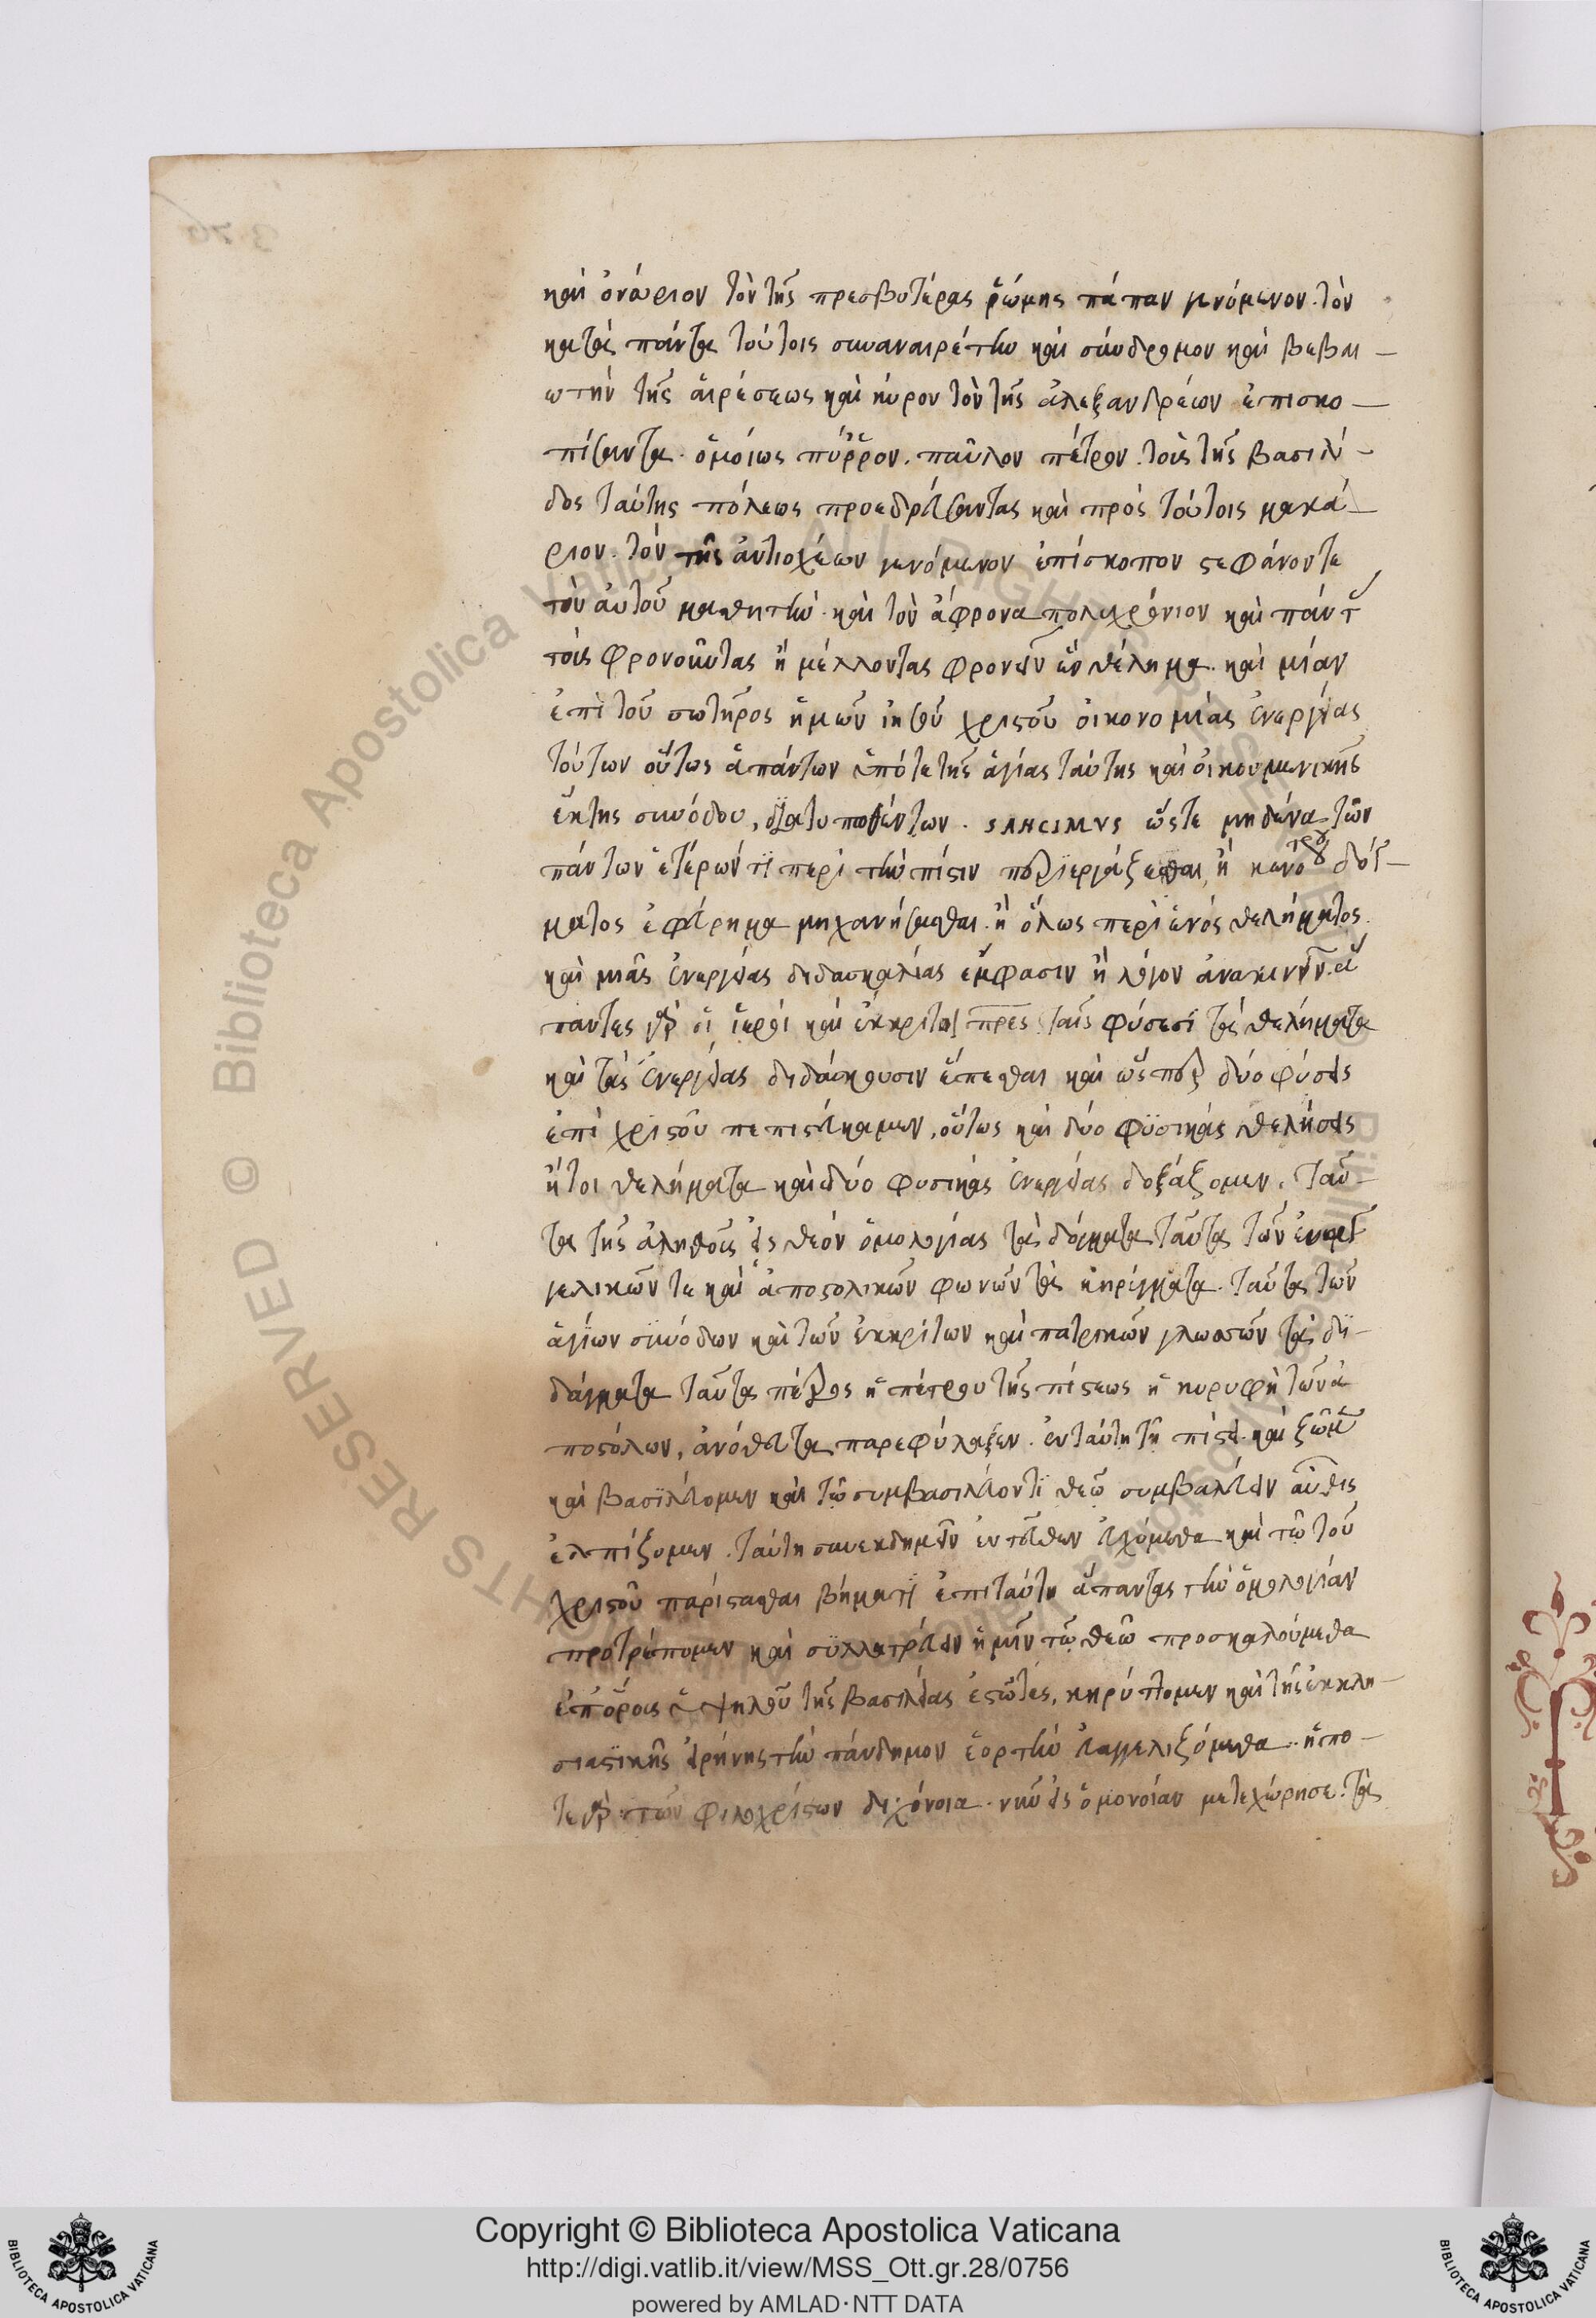 καὶ ὀνώριον τὸν τῆς πρεσβυτέρας ῥώμης πάπαν γενόμενον. τὸν
κατὰ πάντα τούτοις συναιρέτην καὶ σύνδρομον καὶ βεβαι –
ωτὴν τῆς αἱρέσεως καὶ κύρον τὸν τῆς ἀλεξανδρέων ἐπισκο –
πήσαντα. ὁμοίως πύῤῥον. παῦλον πέτρον. τοὺς τῆς βασιλί –
δος ταύτης πόλεως προεδρεύσαντας καὶ πρὸς τούτοις μακά –
ριον. τὸν τῆς ἀντιοχέων γενόμενον ἐπίσκοπον στέφανόν τε
τὸν αὐτοῦ μαθητὴν. καὶ τὸν ἄφρονα πολυχρόνιον καὶ πάντ
τοὺς φρονοῦντας ἢ μέλλοντας φρονεῖν ἓν θέλημα. καὶ μίαν
ἐπὶ τοῦ σωτῆρος ἡμῶν ἰησοῦ χριστοῦ οἰκονομίας ἐνεργείας
τούτων οὕτως ἁπάντων ὑπό τε τῆς ἁγίας ταύτης καὶ οἰκουμενικῆς
ἕκτης συνόδου, διατυπωθέντων. SANCIMVS ὥστε μηδένα τῶν
πάντων ἕτερόν τι περὶ τὴν πίστιν περιεργάζεσθαι, ἢ καινοῦ δόγ –
ματος ἐφεύρημα μηχανήσασθαι. ἢ ὅλως περὶ ἑνὸς θελήματος
καὶ μιᾶς ἐνεργείας διδασκαλίας ἔμφασιν ἢ λόγον ἀνακινεῖν. ἅ
παντες γὰρ οἱ ἱεροὶ καὶ ἔκκριτοι πρες ταῖς φύσεσι τὰ θελήματα
καὶ τὰς ἐνεργείας διδάσκουσιν ἕπεσθαι καὶ ὥσπερ δύο φύσεις
ἐπὶ χριστοῦ πεπιστεύκαμεν, οὕτως καὶ δύο φυσικὰς θελήσεις
ἤτοι θελήματα καὶ δύο φυσικὰς ἐνεργείας δοξάζομεν. ταῦ –
τα τῆς ἀληθοῦς εἰς θεὸν ὁμολογίας τὰ δόγματα ταῦτα τῶν εὐαγ
γελικῶν τε καὶ ἀποστολικῶν φωνῶν τὰ κηρύγματα. ταῦτα τῶν
ἁγίων συνόδων καὶ τῶν ἐκκρίτων καὶ πατρικῶν γλωσσῶν τὰ δι –
δάγματα ταῦτα πέτρος ἡ πέτρου τῆς πίστεως ἡ κορυφὴ τῶν ἀ
ποστόλων, ἀνόθευτα παρεφύλαξεν. ἐν ταύτη τῆ πίστει. καὶ ζῶμεν
καὶ βασιλεύομεν καὶ τῷ συμβασιλεύοντι θεῷ συμβαλεύειν αὖθις
ἐλπίζομεν. ταύτη συνεκδημεῖν ἐντεῦθεν εὐχόμεθα καὶ τῷ τοῦ
χριστοῦ παρίστασθαι βήματι ἐπὶ ταύτη ἅπαντας τὴν ὁμολογίαν
προτρέπομεν καὶ συλλατρεύειν ἡμῖν τῷ θεῷ προσκαλούμεθα
ἐπ' ὄρους ὑψηλοῦ τῆς βασιλείας ἑστῶτες, κηρύττομεν καὶ τῆς ἐκκλη –
σιαστικῆς εἰρήνης τὴν πάνδημον ἑορτὴν εὐαγγελιζόμεθα. ἥ πο –
τε γὰρ τῶν φιλοχρίστων διχόνοια. νῦν εἰς ὁμονοίαν μετεχώρησε. τὰ
Copyright © Biblioteca Apostolica Vaticana
http://digi.vatlib.it/view/MSS_Ott.gr.28/0756
powered by AMLAD·NTT DATA